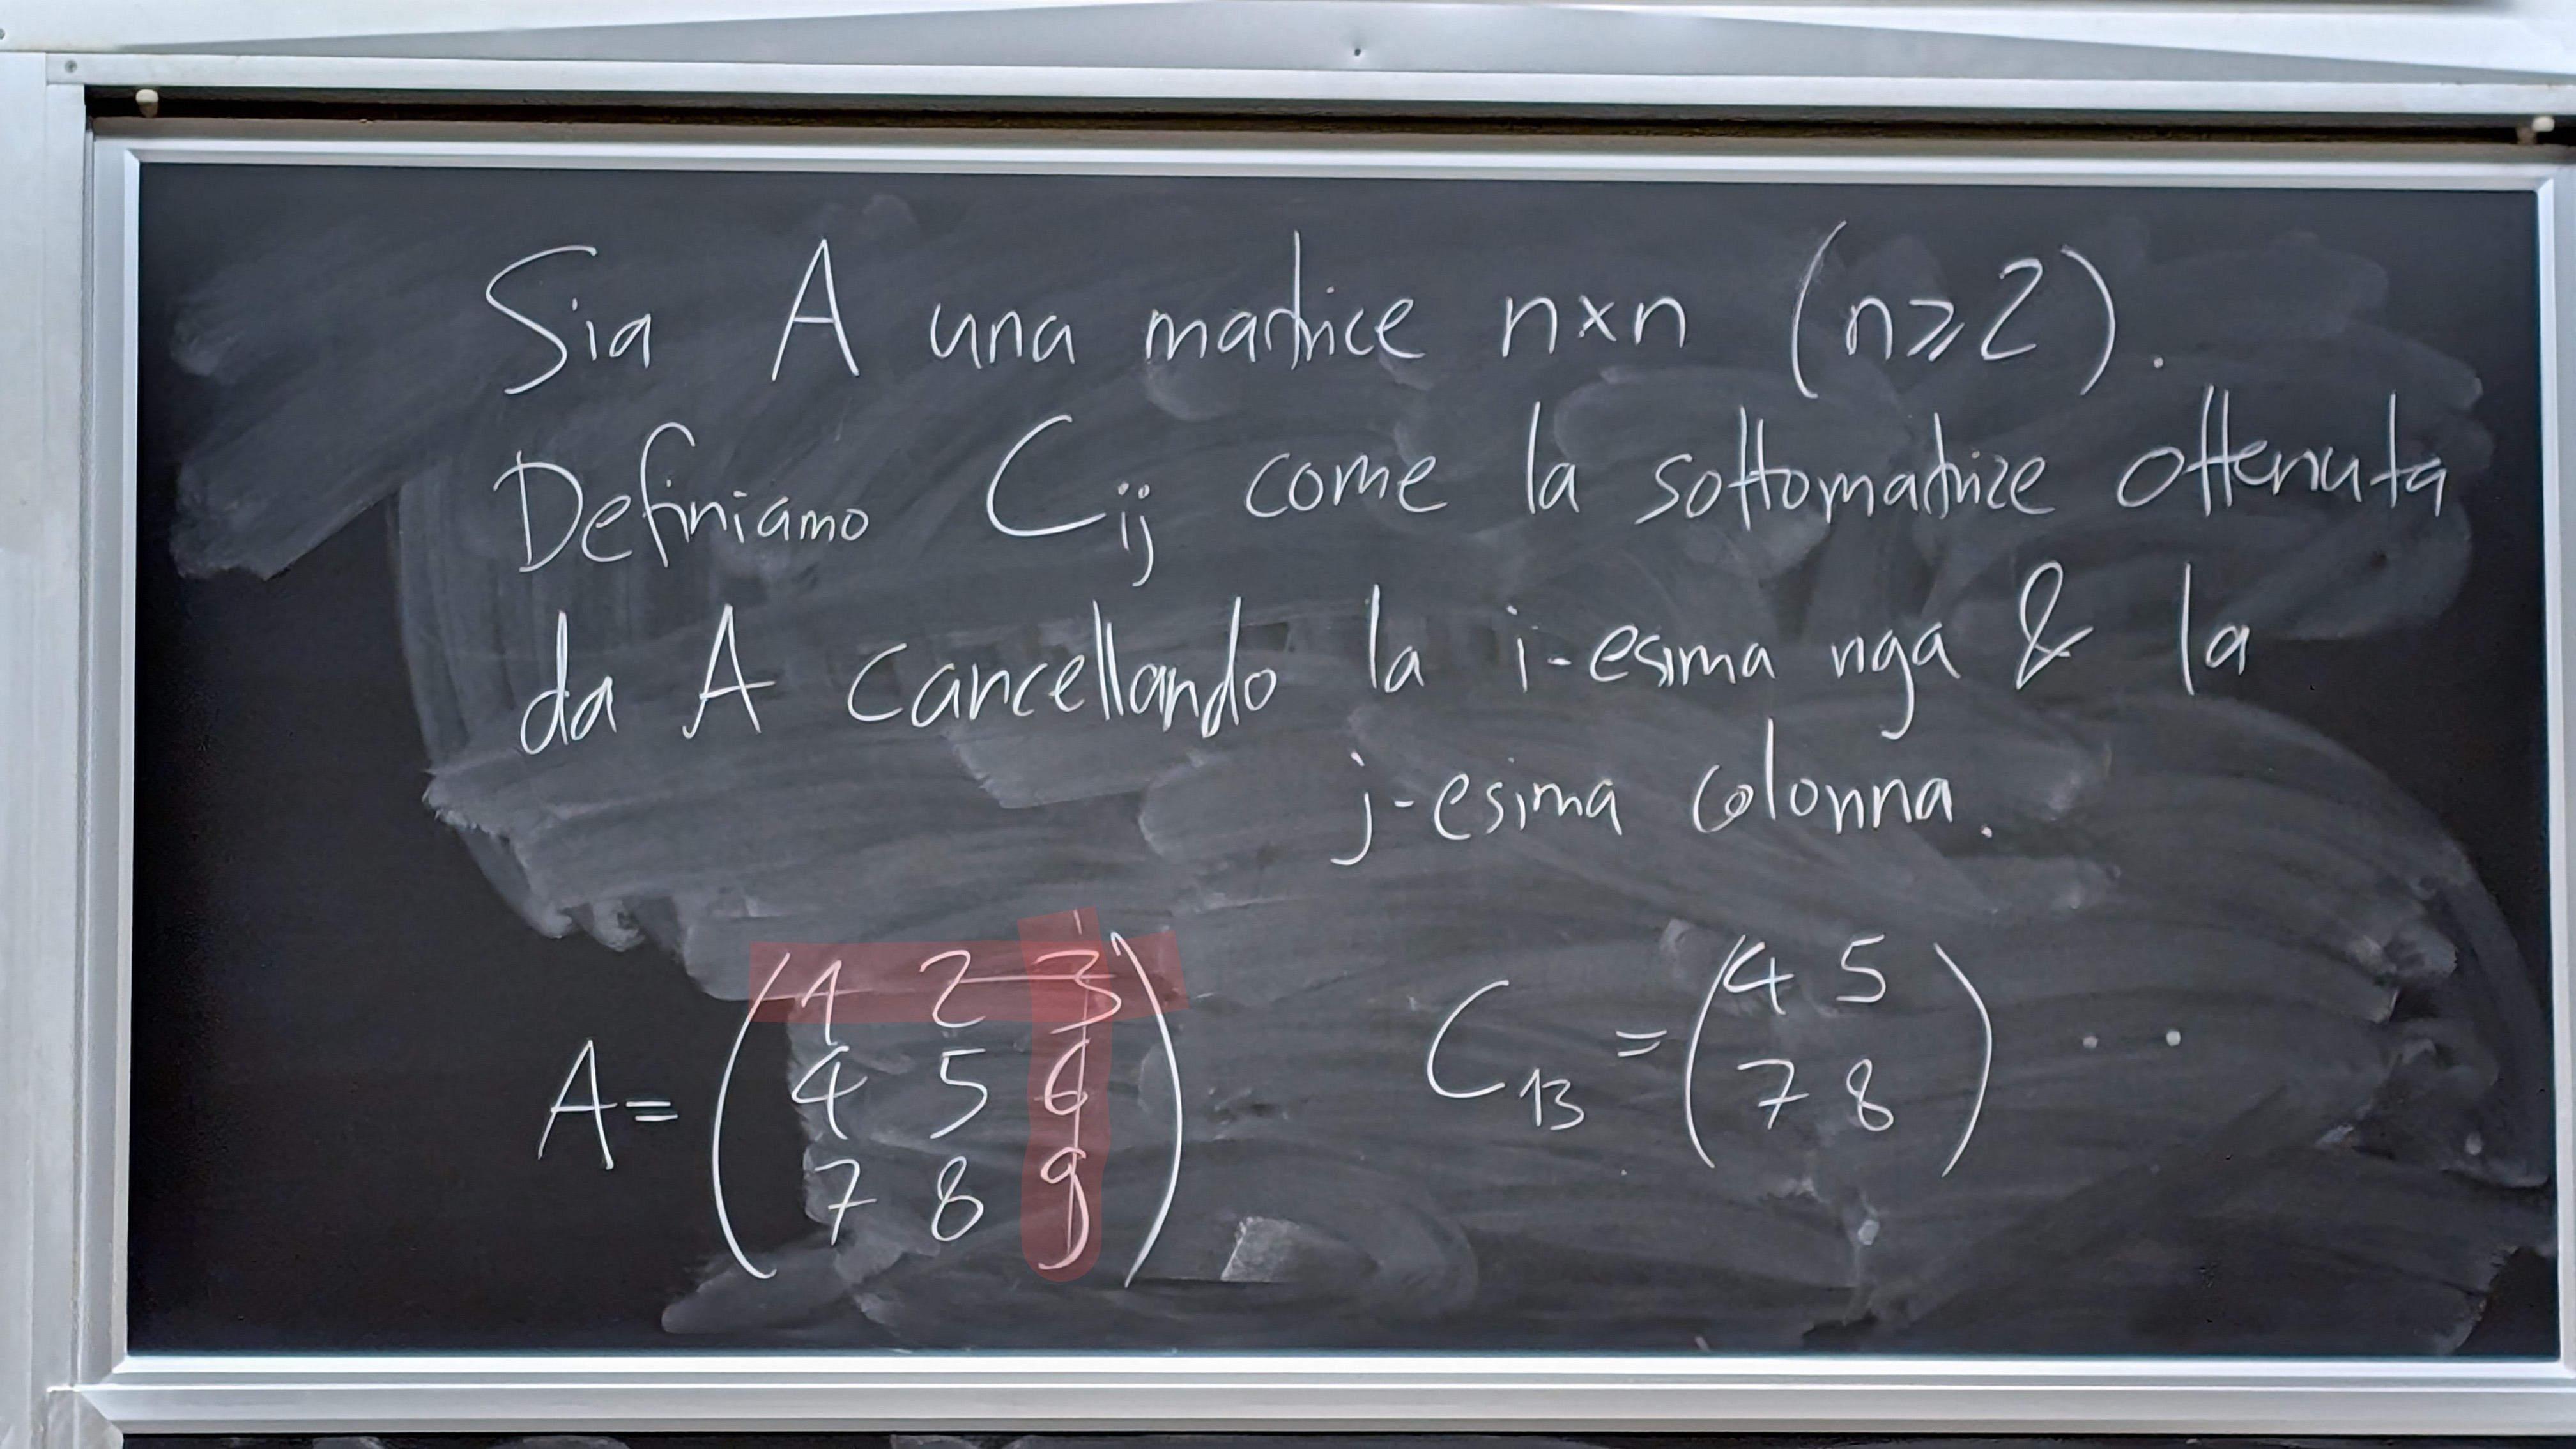 Sia A una matrice n×n (n⩾2).
Definiamo C_ij come la sottomatrice ottenuta
da A cancellando la i-esima riga & la
j-esima colonna.
A= (1 2 3
4 5 6
7 8 9)
C_13 = (4 5
7 8) ..